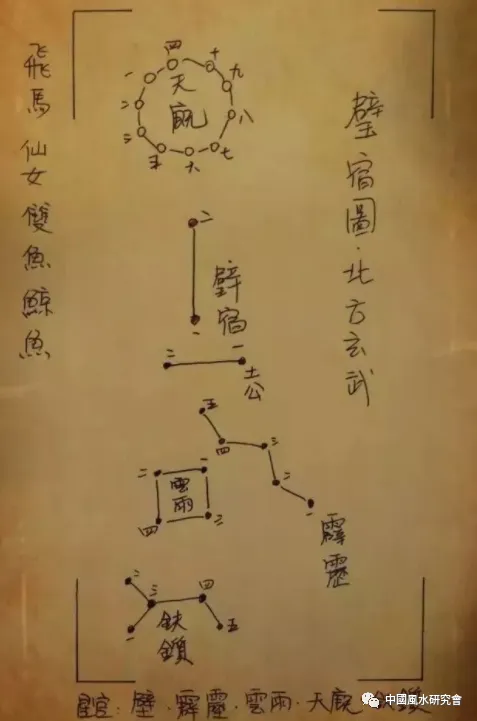 壁宿圖·北方玄武
飛馬 仙女 雙魚 鯨魚
四
十
一
九
天
二
八
三
五
六
七
二
壁宿
一
二
一
土公
五
四
三
二
一
霹靂
二
一
雲雨
四
二
二
三
四
一
五
鈇鑕
星官：壁·霹靂·雲雨·天廄
中國風水研究會